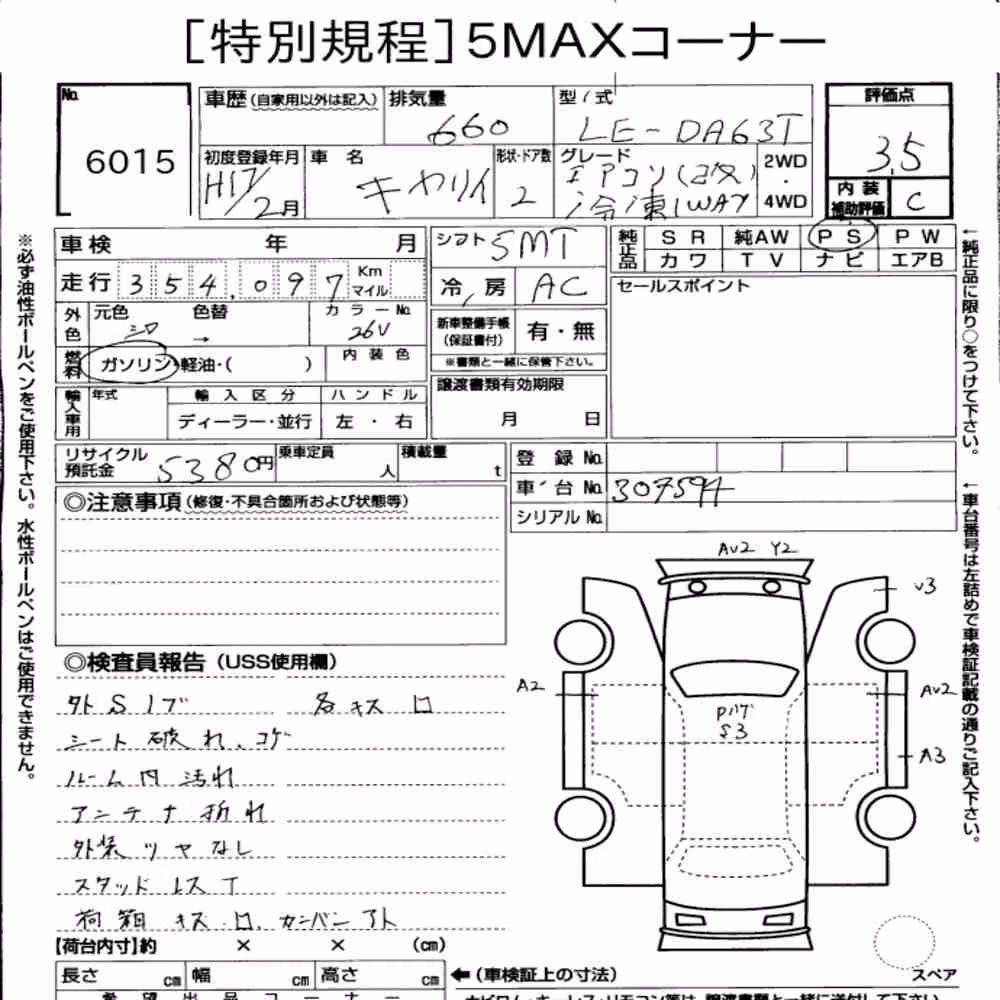 [特別規程]5MAXコーナー
No. 6015
車歴(自家用以外は記入) 排気量 660
型/式 LE-DA63T
評価点 3.5
初度登録年月 H17/2月
車名 キャリイ
形状・ドア数 2
グレード エアコン(2次) 冷凍1WAY
2WD・4WD
内装補助評価 C
車検 年 月
シフト 5MT
純正品 SR 純AW PS PW
カワ TV ナビ エアB
走行 354,097 Km マイル
冷/房 AC
セールスポイント
外色 元色 シロ 色替 → カラーNo. 26U
新車整備手帳(保証書付) 有・無
※書類と一緒に保管下さい。
燃料 ガソリン・軽油・( ) 内装色
譲渡書類有効期限 月 日
輸入車用 年式 輸入区分 ハンドル
ディーラー・並行 左・右
リサイクル預託金 5380円 乗車定員 人 積載量 t
登録No.
車台No. 307594
シリアルNo.
◎注意事項(修復・不具合箇所および状態等)
◎検査員報告(USS使用欄)
外Sノブ 各キズ ロ
シート破れ、コゲ
ルーム内汚れ
アンテナ折れ
外装ツヤなし
スタッドレスT
荷箱キズ・ロ、カンバンアト
AU2 Y2
U3
A2
AU2
A3
S3
【荷台内寸】約 × × (cm)
長さ cm 幅 cm 高さ cm
←(車検証上の寸法)
スペア
希望出品コーナー
※必ず油性ボールペンをご使用下さい。水性ボールペンはご使用できません。
←純正品に限り○をつけて下さい。
←車台番号は左詰めで車検証記載の通りご記入下さい。